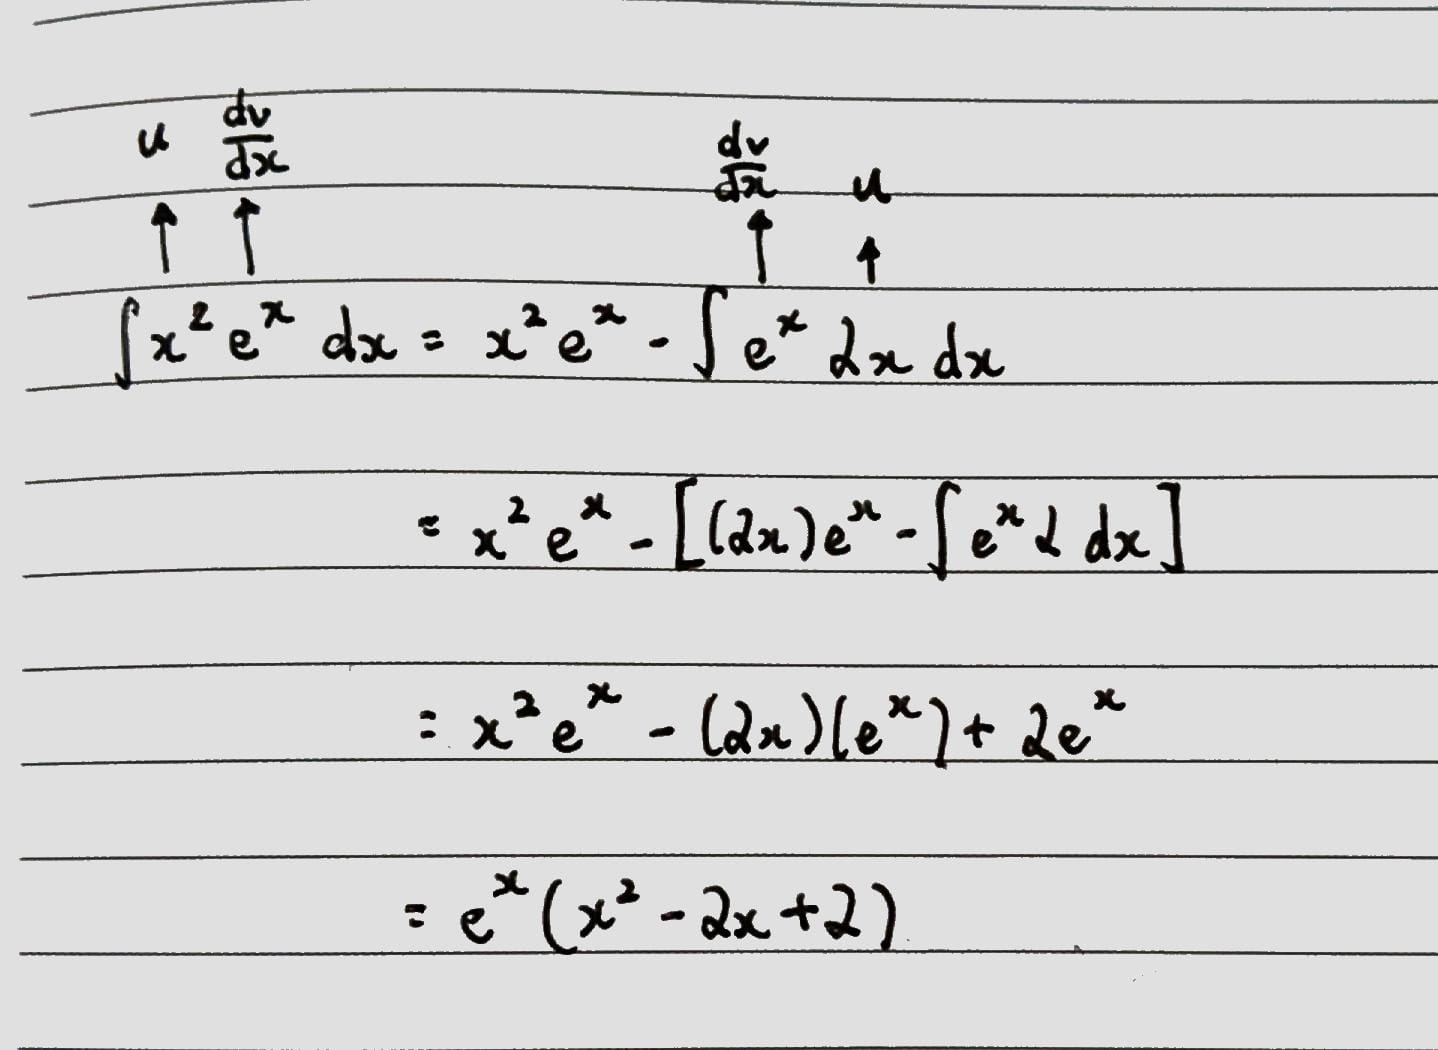 u dv/dx dv/dx u
↑ ↑ ↑ ↑
∫x² eˣ dx = x² eˣ - ∫eˣ 2x dx
= x² eˣ - [(2x)eˣ - ∫eˣ 2 dx]
= x² eˣ - (2x)(eˣ) + 2eˣ
= eˣ(x² - 2x + 2)